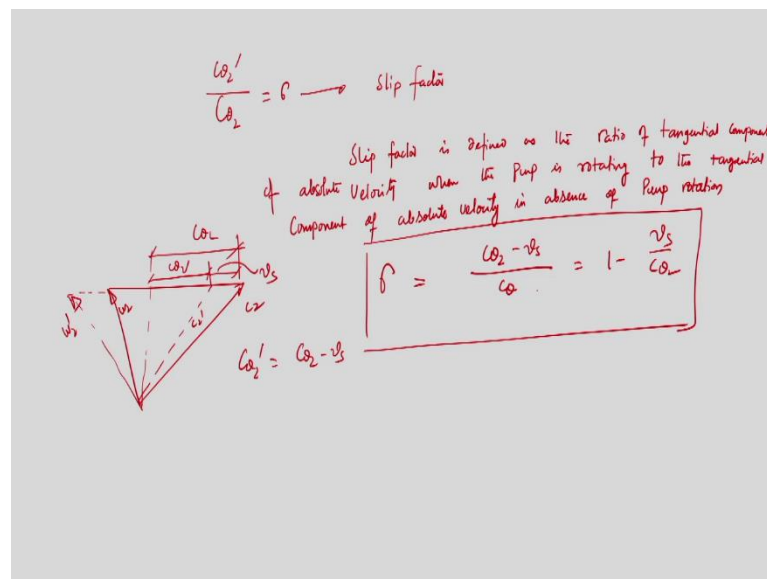 Cθ₂' / Cθ₂ = σ → Slip factor
Slip factor is defined as the ratio of tangential component
of absolute velocity when the pump is rotating to the tangential
component of absolute velocity in absence of pump rotation
σ = Cθ₂ - vₛ / Cθ = 1 - vₛ / Cθ₂
Cθ₂
Cθ₂'
vₛ
w₂' w₂ c₂' c₂
Cθ₂' = Cθ₂ - vₛ